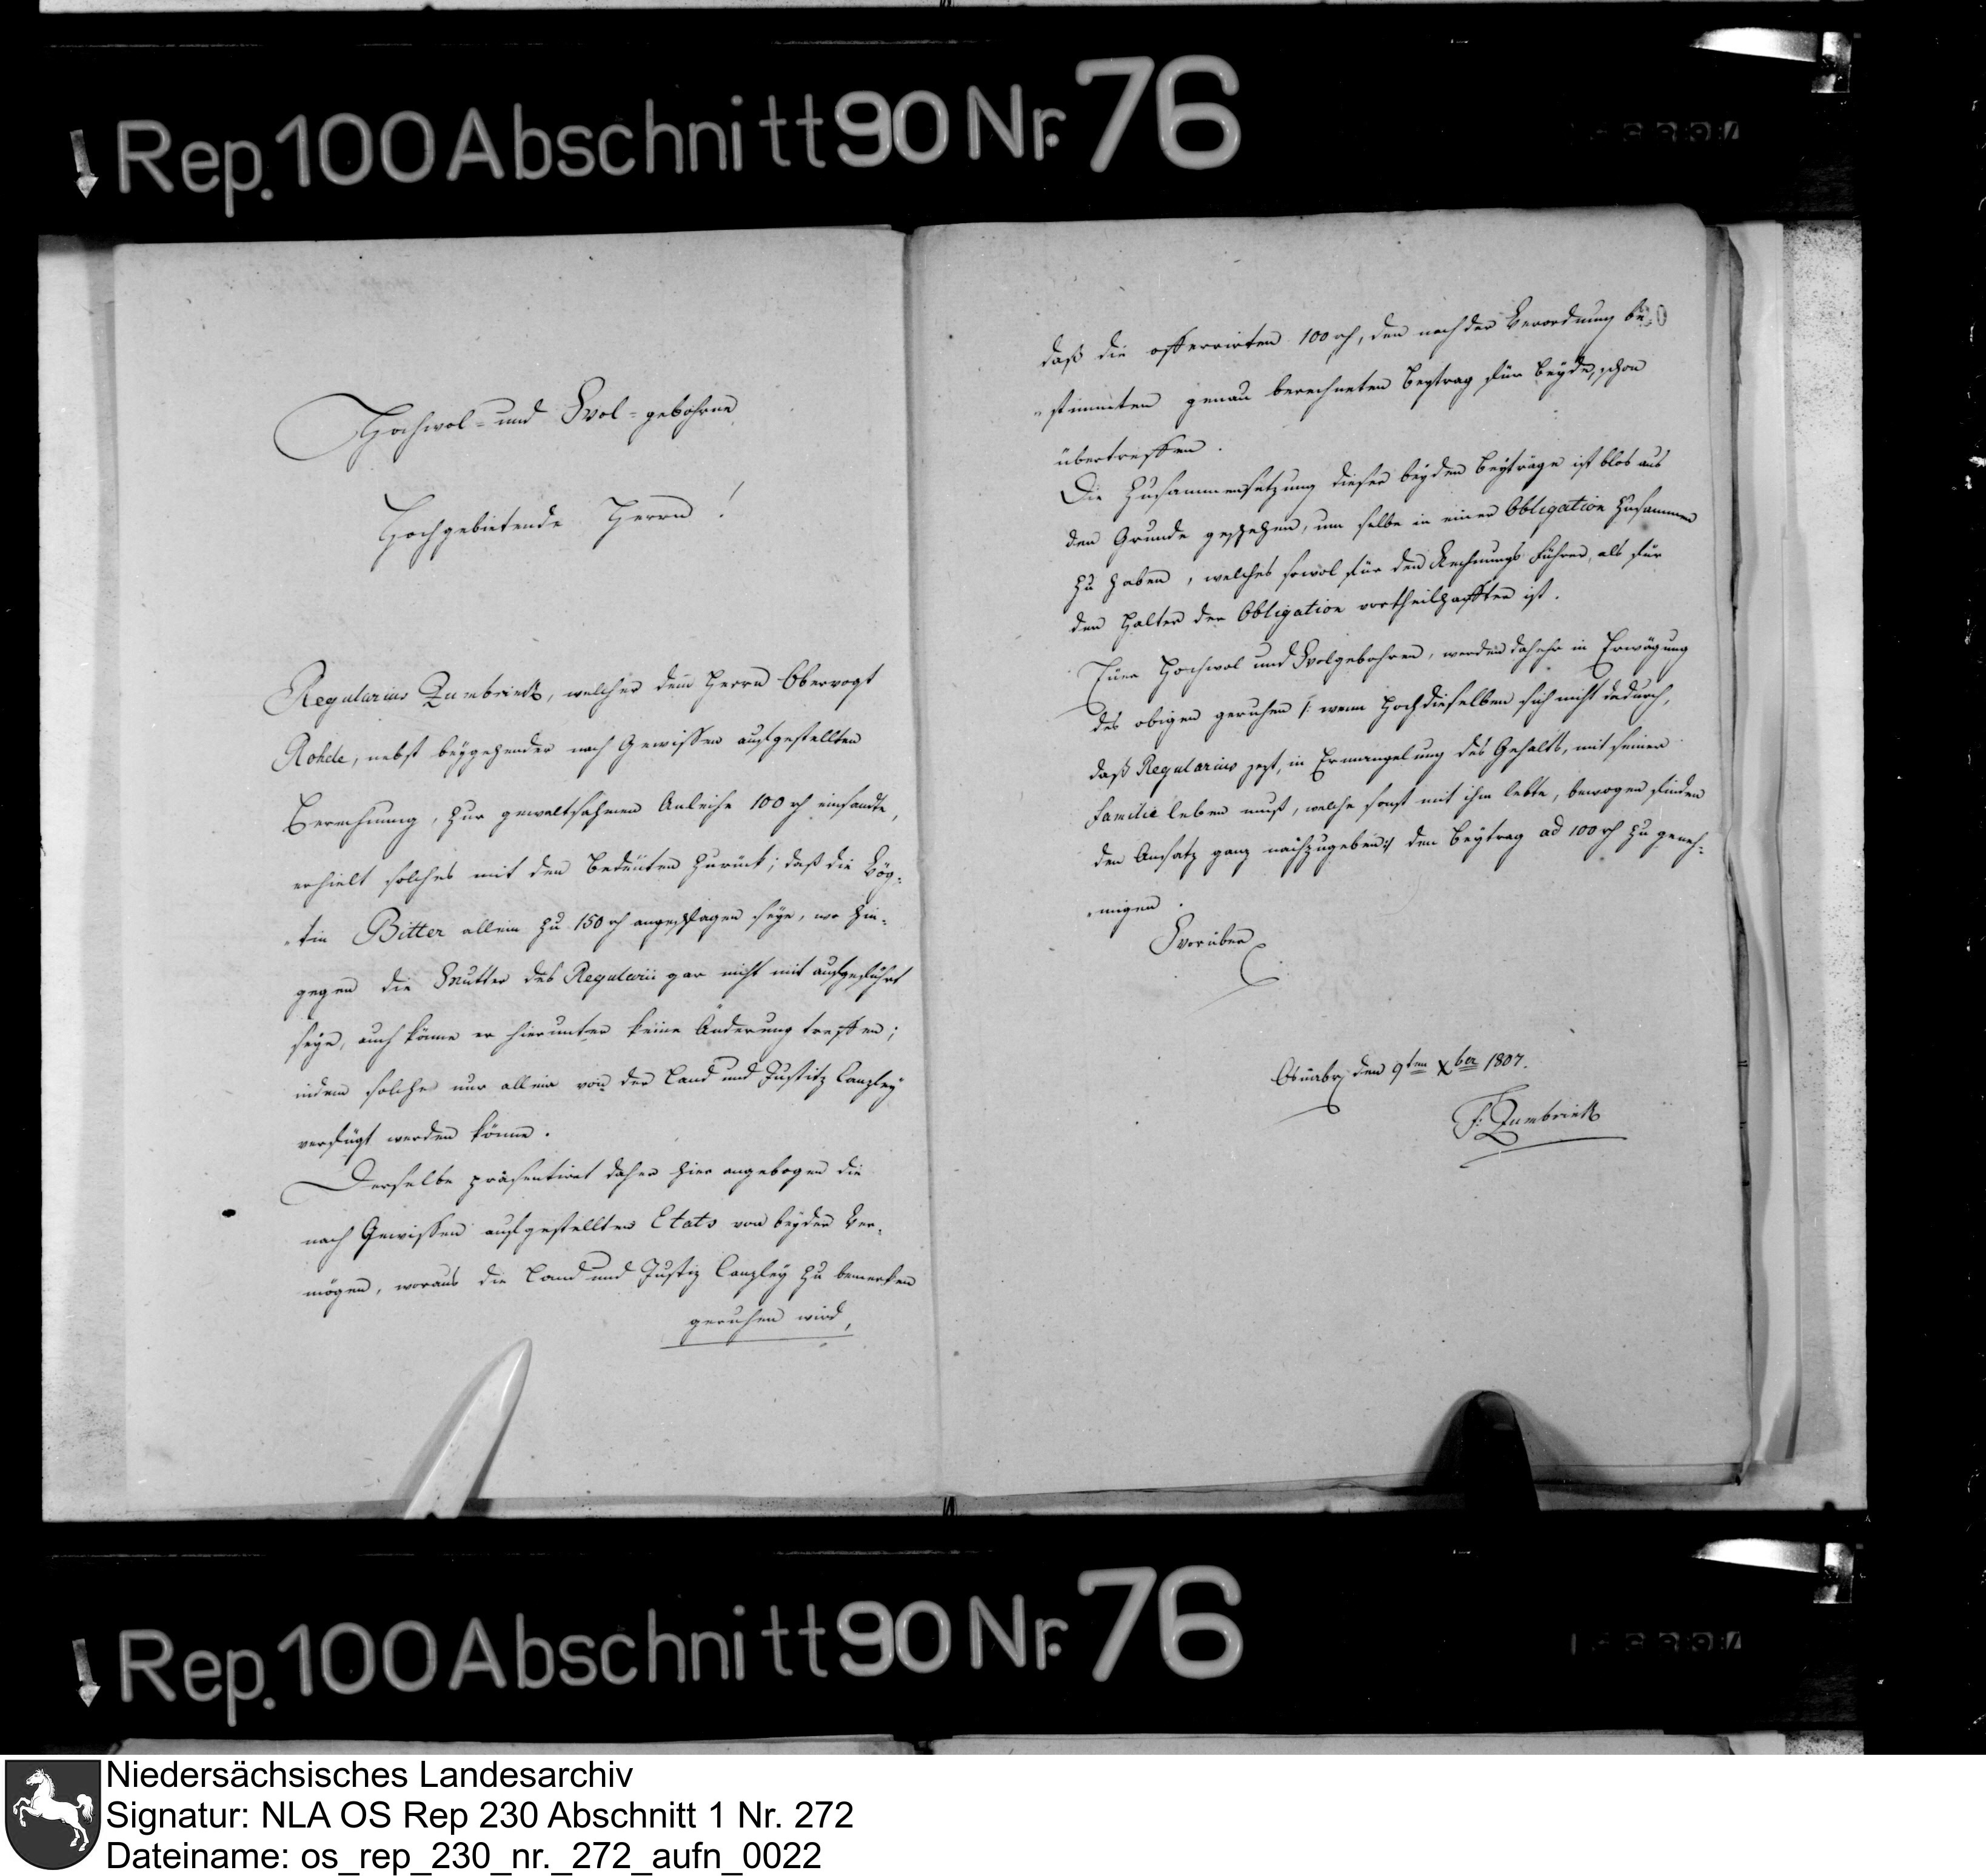 Rep. 100 Abschnitt 90 Nr. 76
Hochwol- und Wol-gebohrne
Hochgebietende Herrn!
Regularius Zumbrink, welcher dem Herrn Obervogt
Rohde, nebst beÿgehender nach Gewissen aufgestellten
Berechnung, zur gewaltsahmen Anleihe 100 rh einsandte,
erhielt solches mit den Bedeuten zurück; daß die Vög-
"tin Bitter allein zu 150 rh angeschlagen seÿe, wo hin-
gegen die Mutter des Regularii gar nicht mit aufgeführt
seÿe, auch könne er hierunter keine Änderung treffen;
indem solche nur allein von der Land und Justitz Canzleÿ
verfügt werden könne.
Derselbe präsentirt daher hier angebogen die
nach Gewissen aufgestellten Etats von beÿder Ver-
mögen, woraus die Land und Justiz Canzleÿ zu bemerken
geruhen wird,
daß die offerrirten 100 rh, den nach der Verordnung be
"stimmten genau berechneten Beytrag für beÿde, schon
übertreffen.
Die Zusammensetzung dieser beÿden Beÿträge ist blos aus
den Grunde geschehen, um selbe in einer Obligation zusammen
zu haben, welches sowol für den Rechnungs Führer, als für
den Halter der Obligation vortheilhaffter ist.
Euer Hochwol und Wolgebohren, werden dahehr in Erwägung
des obigen geruhen /: wenn Hochdieselben sich nicht dadurch,
daß Regularius jezt, in Ermangelung des Gehalts, mit seiner
Familie leben muß, welche sonst mit ihm lebte, bewogen finden
den Ansatz ganz nachzugeben :/ den Beÿtrag ad 100 rh zu geneh-
"migen.
Worüber
Osnabr. den 9ten Xber 1807.
F: Zumbrink
Rep. 100 Abschnitt 90 Nr. 76
Niedersächsisches Landesarchiv
Signatur: NLA OS Rep 230 Abschnitt 1 Nr. 272
Dateiname: os_rep_230_nr._272_aufn_0022